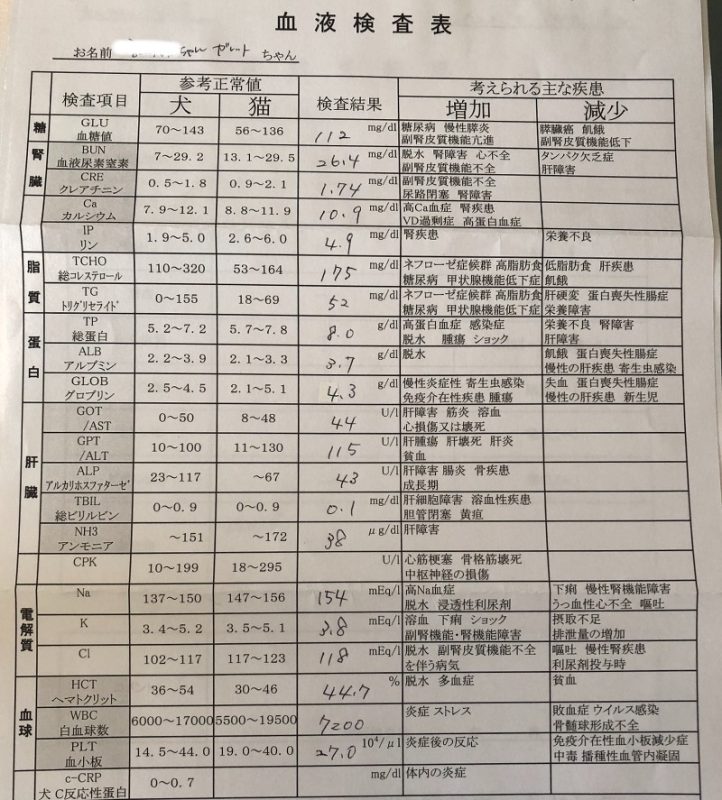 血液検査表
お名前 ちゃん ガレット ちゃん
検査項目 参考正常値 犬 猫 検査結果 考えられる主な疾患 増加 減少
糖 GLU 血糖値 70～143 56～136 112 mg/dl 糖尿病 慢性膵炎 副腎皮質機能亢進 膵臓癌 飢餓 副腎皮質機能低下
腎臓 BUN 血液尿素窒素 7～29.2 13.1～29.5 26.4 mg/dl 脱水 腎障害 心不全 副腎皮質機能不全 タンパク欠乏症 肝障害
CRE クレアチニン 0.5～1.8 0.9～2.1 1.74 mg/dl 副腎皮質機能不全 尿路閉塞 腎障害
Ca カルシウム 7.9～12.1 8.8～11.9 10.9 mg/dl 高Ca血症 腎疾患 VD過剰症 高蛋白血症
IP リン 1.9～5.0 2.6～6.0 4.9 mg/dl 腎疾患 栄養不良
脂質 TCHO 総コレステロール 110～320 53～164 175 mg/dl ネフローゼ症候群 高脂肪食 糖尿病 甲状腺機能低下症 低脂肪食 肝疾患 飢餓
TG トリグリセライド 0～155 18～69 52 mg/dl ネフローゼ症候群 高脂肪食 糖尿病 甲状腺機能低下症 肝硬変 蛋白喪失性腸症 栄養障害
蛋白 TP 総蛋白 5.2～7.2 5.7～7.8 8.0 g/dl 高蛋白血症 感染症 脱水 腫瘍 ショック 栄養不良 腎障害 肝障害
ALB アルブミン 2.2～3.9 2.1～3.3 3.7 g/dl 脱水 飢餓 蛋白喪失性腸症 慢性の肝疾患 寄生虫感染
GLOB グロブリン 2.5～4.5 2.1～5.1 4.3 g/dl 慢性炎症性 寄生虫感染 免疫介在性疾患 腫瘍 失血 蛋白喪失性腸症 慢性の肝疾患 新生児
肝臓 GOT /AST 0～50 8～48 44 U/l 肝障害 筋炎 溶血 心損傷又は壊死
GPT /ALT 10～100 11～130 115 U/l 肝腫瘍 肝壊死 肝炎 貧血
ALP アルカリホスファターゼ 23～117 ～67 43 U/l 肝障害 腸炎 骨疾患 成長期
TBIL 総ビリルビン 0～0.9 0～0.9 0.1 mg/dl 肝細胞障害 溶血性疾患 胆管閉塞 黄疸
NH3 アンモニア ～151 ～172 38 μg/dl 肝障害
CPK 10～199 18～295 U/l 心筋梗塞 骨格筋壊死 中枢神経の損傷
電解質 Na 137～150 147～156 154 mEq/l 高Na血症 脱水 浸透性利尿剤 下痢 慢性腎機能障害 うっ血性心不全 嘔吐
K 3.4～5.2 3.5～5.1 3.8 mEq/l 溶血 下痢 ショック 副腎機能・腎機能障害 摂取不足 排泄量の増加
Cl 102～117 117～123 118 mEq/l 脱水 副腎皮質機能不全 を伴う病気 嘔吐 慢性腎疾患 利尿剤投与時
血球 HCT ヘマトクリット 36～54 30～46 44.7 % 脱水 多血症 貧血
WBC 白血球数 6000～17000 5500～19500 7200 炎症 ストレス 敗血症 ウイルス感染 骨髄球形成不全
PLT 血小板 14.5～44.0 19.0～40.0 27.0 10⁴/μl 炎症後の反応 免疫介在性血小板減少症 中毒 播種性血管内凝固
c-CRP 犬 C反応性蛋白 0～0.7 mg/dl 体内の炎症